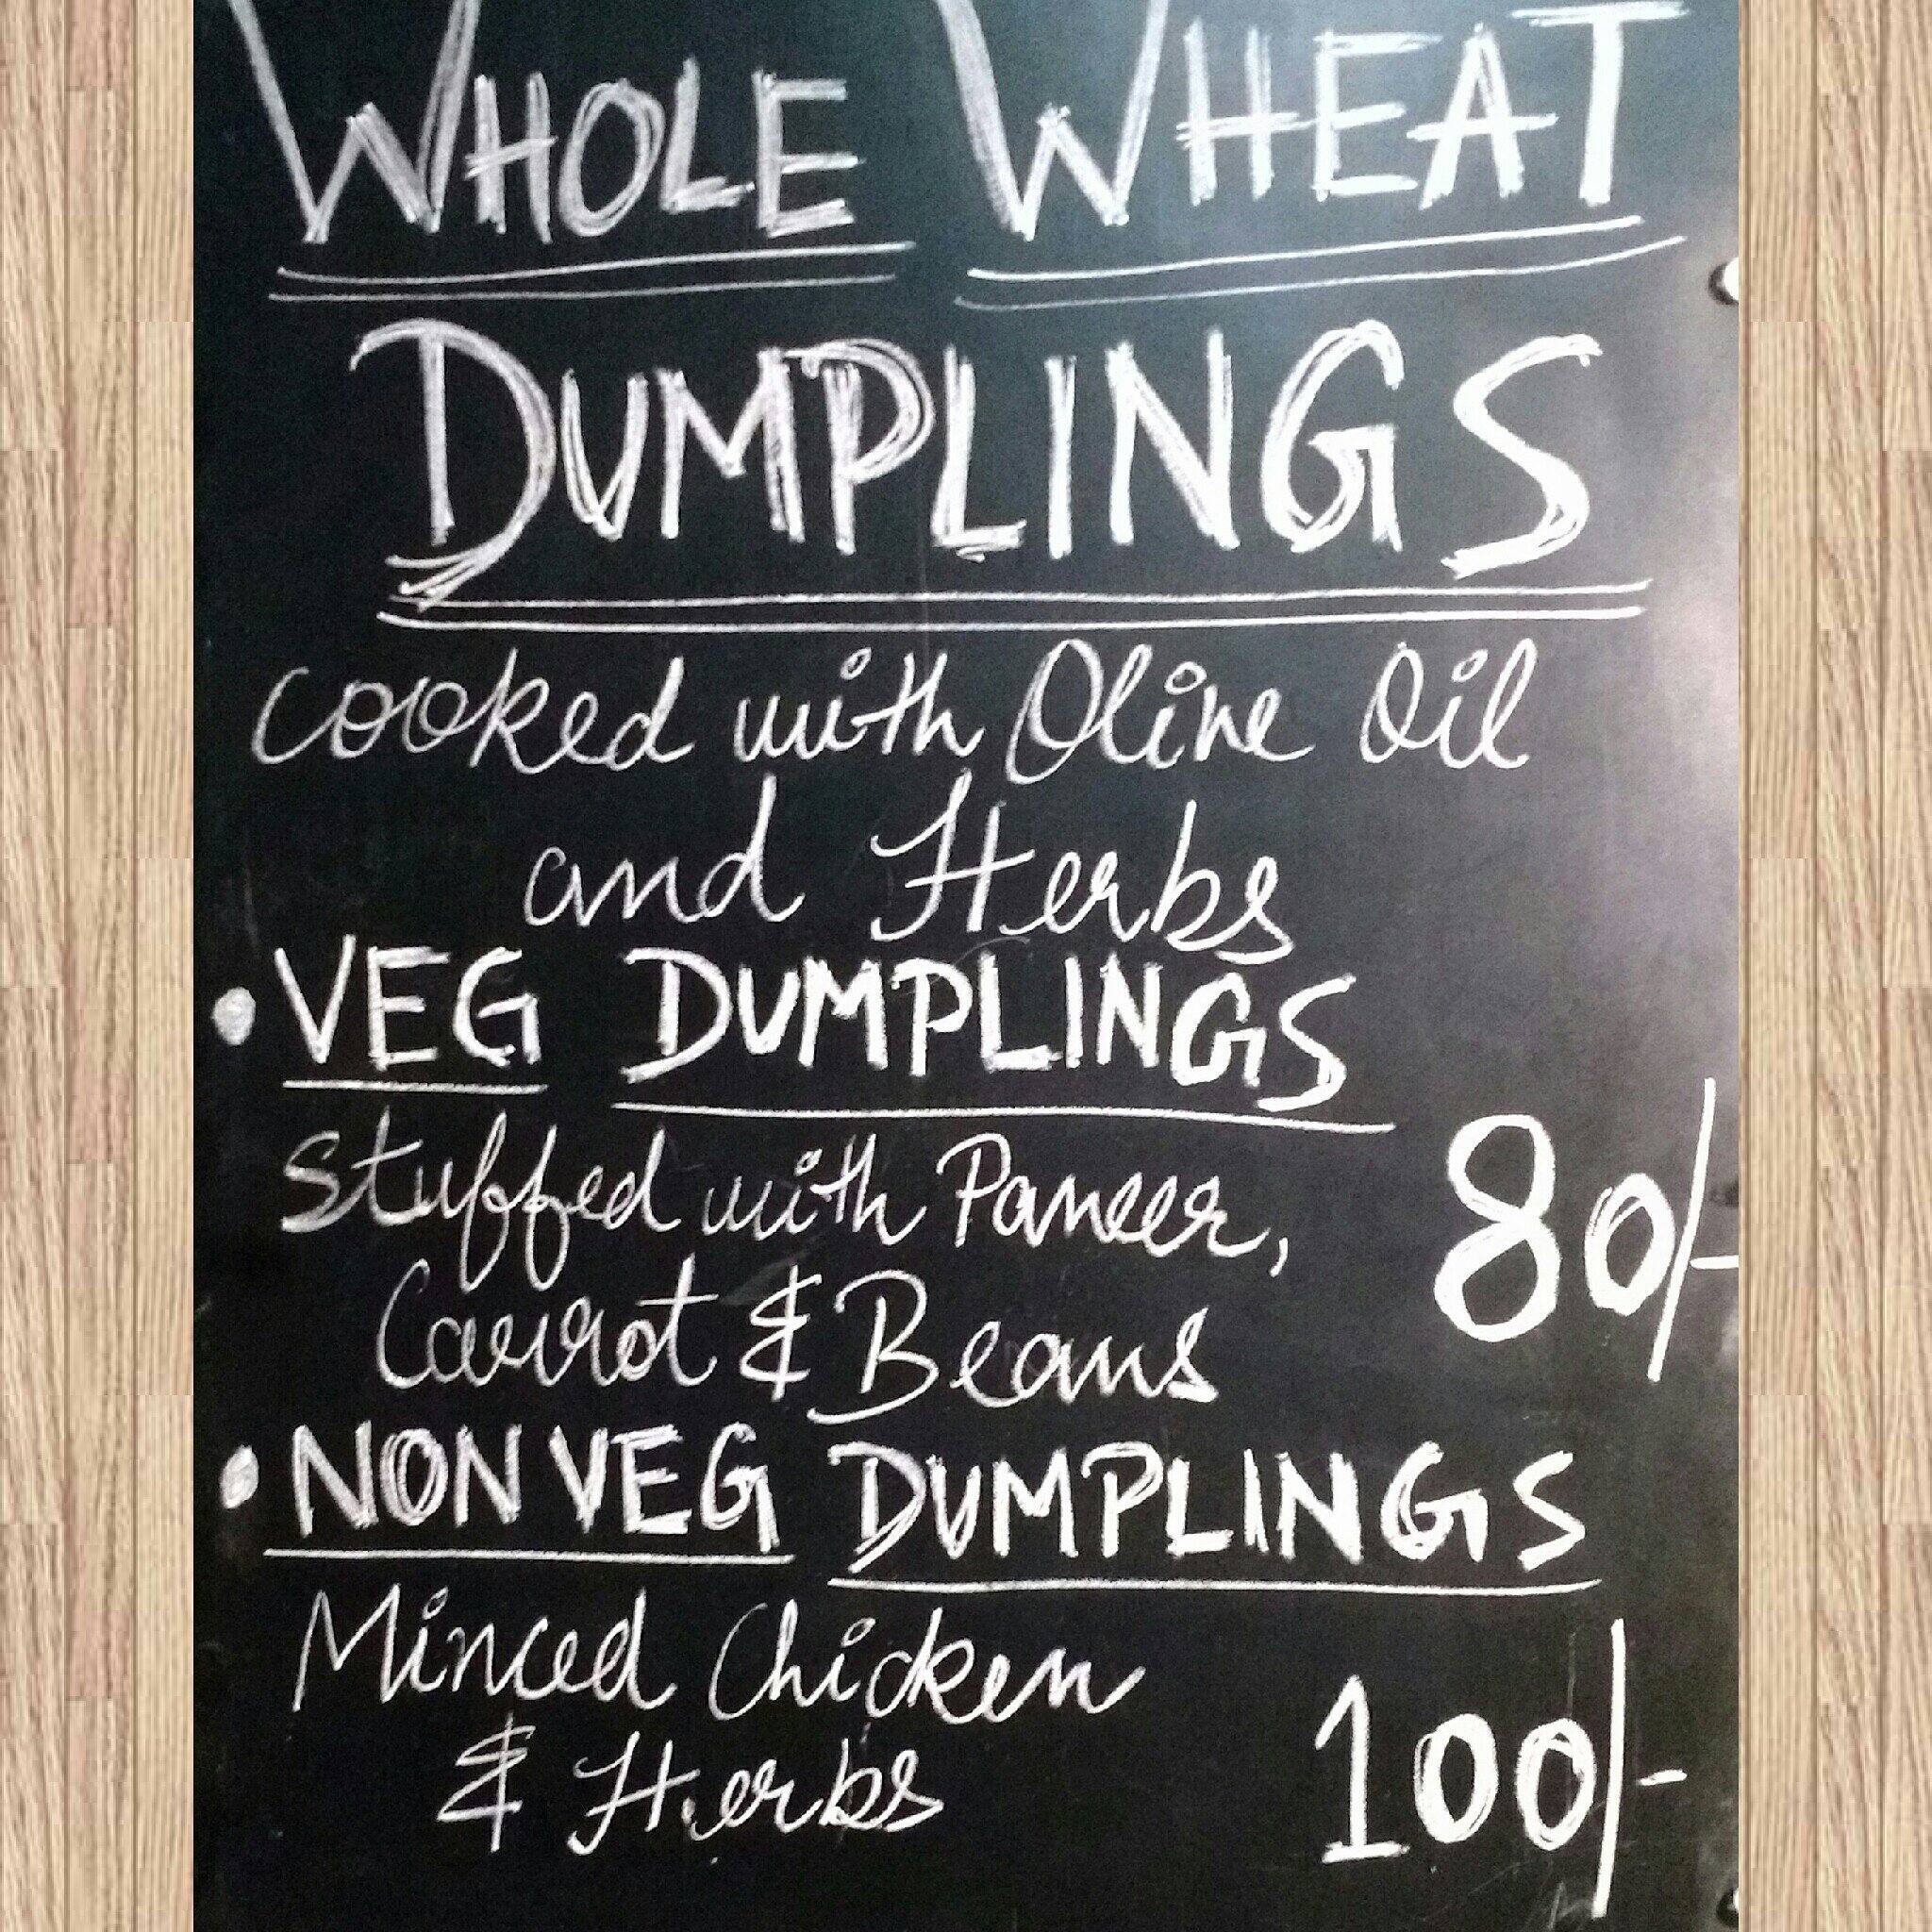 WHOLE WHEAT
DUMPLINGS
cooked with Olive Oil
and Herbs
• VEG DUMPLINGS
Stuffed with Paneer,
Carrot & Beans
80/-
• NON VEG DUMPLINGS
Minced Chicken
& Herbs
100/-